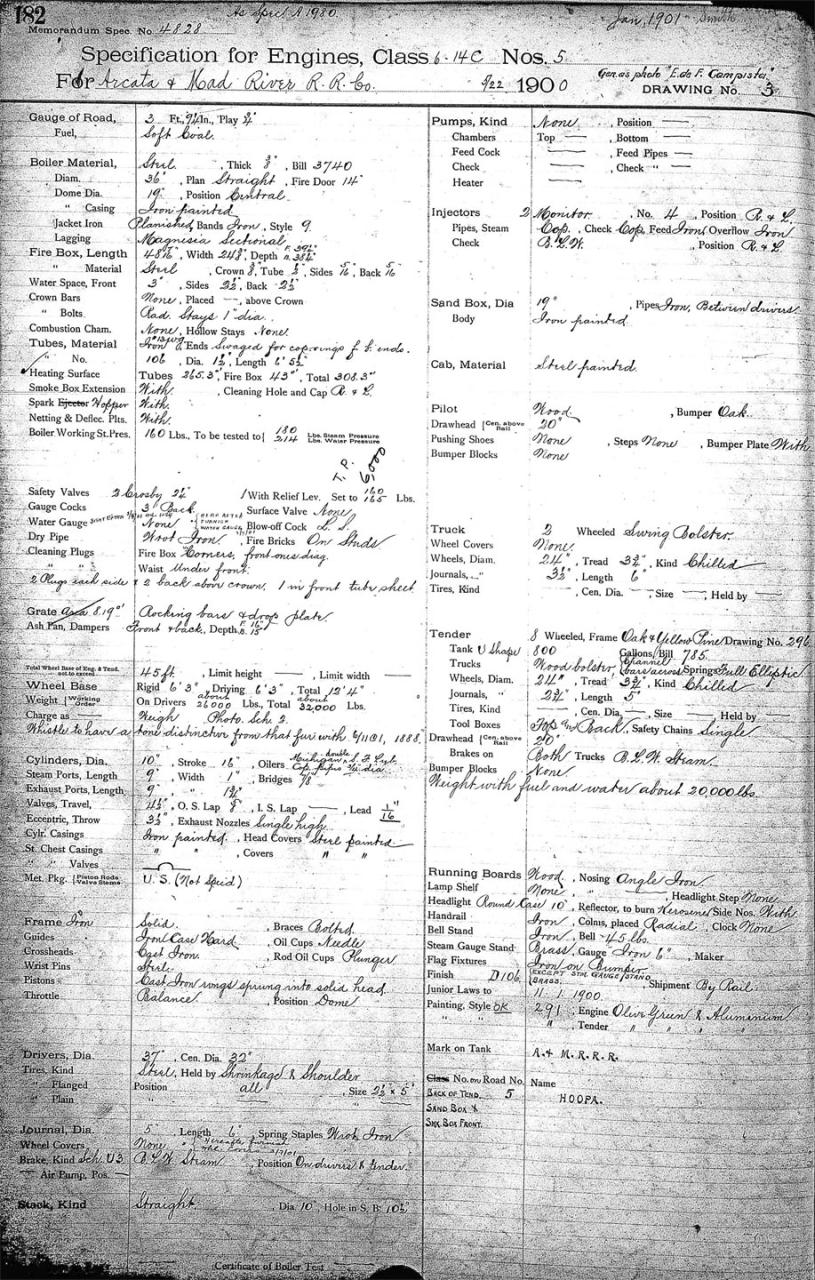 182
As Spec A 1980.
Jan, 1901 Smith
Memorandum Spec. No. 4828
Specification for Engines, Class 6-14C Nos. 5
For Arcata & Mad River R. R. Co. 5/22 1900
Gen. as photo "E. de F. Campista"
DRAWING No. 3
Gauge of Road, 3 Ft., 9¼ In., Play ¾"
Fuel, Soft Coal.
Boiler Material, Steel , Thick ⅜" , Bill 3740
Diam. 36" , Plan Straight , Fire Door 14"
Dome Dia. 19" , Position Central.
" Casing Iron painted
Jacket Iron Planished, Bands Iron , Style 9.
Lagging Magnesia Sectional
Fire Box, Length , Width , Depth
" Material Steel , Crown ⅜", Tube ½", Sides 5/16", Back 5/16"
Water Space, Front 3" , Sides 2½", Back 2½"
Crown Bars None, Placed —, above Crown
" Bolts Rad. Stays 1" dia.
Combustion Cham. None, Hollow Stays None.
Tubes, Material Iron , Ends Swaged for cop. rings f. b. ends.
" No. 106 , Dia. 1½", Length 6' 5½"
Heating Surface Tubes 265.3", Fire Box 43", Total 308.3"
Smoke Box Extension With. , Cleaning Hole and Cap R. & L.
Spark Ejector Hopper With.
Netting & Deflec. Plts. With.
Boiler Working St. Pres. 160 Lbs., To be tested to 180 Lbs. Steam Pressure
214 Lbs. Water Pressure
T. P. 6,000
Safety Valves 2 Crosby 2¼" With Relief Lev. Set to 160 165 Lbs.
Gauge Cocks 3 Back Surface Valve None
Water Gauge None Blow-off Cock L. S.
HEREAFTER FURNISH WATER GAUGE
Dry Pipe Wrot Iron , Fire Bricks On Studs
Cleaning Plugs Fire Box Corners, front ones diag.
" " Waist Under front.
2 Plugs each side & 2 back above crown. 1 in front tube sheet
Grate Area 8.19 Rocking bars & drop plate.
Ash Pan, Dampers Front & back, Depth F. 16" B. 15"
Total Wheel Base of Eng. & Tend. not to exceed 45 ft. , Limit height — , Limit width —
Wheel Base Rigid 6' 3" , Driving 6' 3" , Total 12' 4"
Weight Working Order On Drivers about 26000 Lbs., Total about 32,000 Lbs.
Charge as — Weigh Photo. Sch. 2.
Whistle to have a tone distinctive from that fur with 6/1101, 1888.
Cylinders, Dia. 10" , Stroke 16" , Oilers Michigan double S. F. Lub. Cop. Pipes dia.
Steam Ports, Length 9" , Width 1" , Bridges 7/8"
Exhaust Ports, Length 9" , " 1¾"
Valves, Travel, 4½" , O. S. Lap ⅝" , I. S. Lap — , Lead 1/16"
Eccentric, Throw 3½" , Exhaust Nozzles Single high.
Cylr. Casings Iron painted , Head Covers Steel painted
St. Chest Casings " " , Covers " "
" " Valves
Met. Pkg. Piston Rods Valve Stems U. S. (Not Specid)
Frame Iron Solid. , Braces Bolted.
Guides Iron Case Hard , Oil Cups Needle
Crossheads Cast Iron. , Rod Oil Cups Plunger
Wrist Pins Steel.
Pistons Cast Iron rings sprung into solid head.
Throttle Balance , Position Dome
Drivers, Dia. 37" , Cen. Dia. 32"
Tires, Kind Steel, Held by Shrinkage & Shoulder
" Flanged Position all , Size 2½" x 5"
" Plain "
Journal, Dia. 5" , Length 6" , Spring Staples Wrot Iron
Wheel Covers None.
Hereafter furnish
Brake, Kind Sch. U3 B. L. W. Steam , Position On drivers & tender.
— Air Pump, Pos. —
Stack, Kind Straight , Dia 10", Hole in S. B. 10½"
Certificate of Boiler Test
Pumps, Kind None , Position —
Chambers Top — , Bottom —
Feed Cock — , Feed Pipes —
Check — , Check " —
Heater —
Injectors 2 Monitor , No. 4 , Position R. & L.
Pipes, Steam Cop. , Check Cop. Feed Iron, Overflow Iron
Check B. L. W. , Position R. & L.
Sand Box, Dia 19" , Pipes Iron, Between drivers.
Body Iron painted.
Cab, Material Steel painted.
Pilot Wood , Bumper Oak.
Drawhead Cen. above Rail 20"
Pushing Shoes None , Steps None , Bumper Plate With
Bumper Blocks None
Truck 2 Wheeled Swing Bolster.
Wheel Covers None.
Wheels, Diam. 24" , Tread 3¾", Kind Chilled
Journals, " 3½" , Length 6"
Tires, Kind — , Cen. Dia. — , Size — , Held by —
Tender 8 Wheeled, Frame Oak & Yellow Pine, Drawing No. 296
Tank U shape 800 Gallons, Bill 785
Trucks Wood bolster, Channel bars across Springs Full Elliptic
Wheels, Diam. 24" , Tread 3¾", Kind Chilled
Journals, " 2¾" , Length 5"
Tires, Kind — , Cen. Dia. — , Size — , Held by —
Tool Boxes Top and Back , Safety Chains Single
Drawhead Cen. above Rail 20"
Brakes on Both Trucks B. L. W. Steam
Bumper Blocks None
Weight with fuel and water about 20,000 lbs.
Running Boards Wood , Nosing Angle Iron.
Lamp Shelf None , " — , Headlight Step None
Headlight Round Case 10", Reflector, to burn Kerosene Side Nos. With
Handrail Iron , Colms, placed Radial , Clock None
Bell Stand Iron , Bell 45 lbs.
Steam Gauge Stand Brass , Gauge Iron 6" , Maker
Flag Fixtures Iron on Bumper
Finish D106. EXCEPT STM. GAUGE STAND BRASS. , Shipment By Rail.
Junior Laws to 11 1 1900.
Painting, Style OK 291 , Engine Olive Green & Aluminium
" " , Tender " " " "
Mark on Tank A. & M. R. R. R.
Class No. on Road No. Name
BACK OF TEND. 5 HOOPA.
SAND BOX &
SMK BOX FRONT.